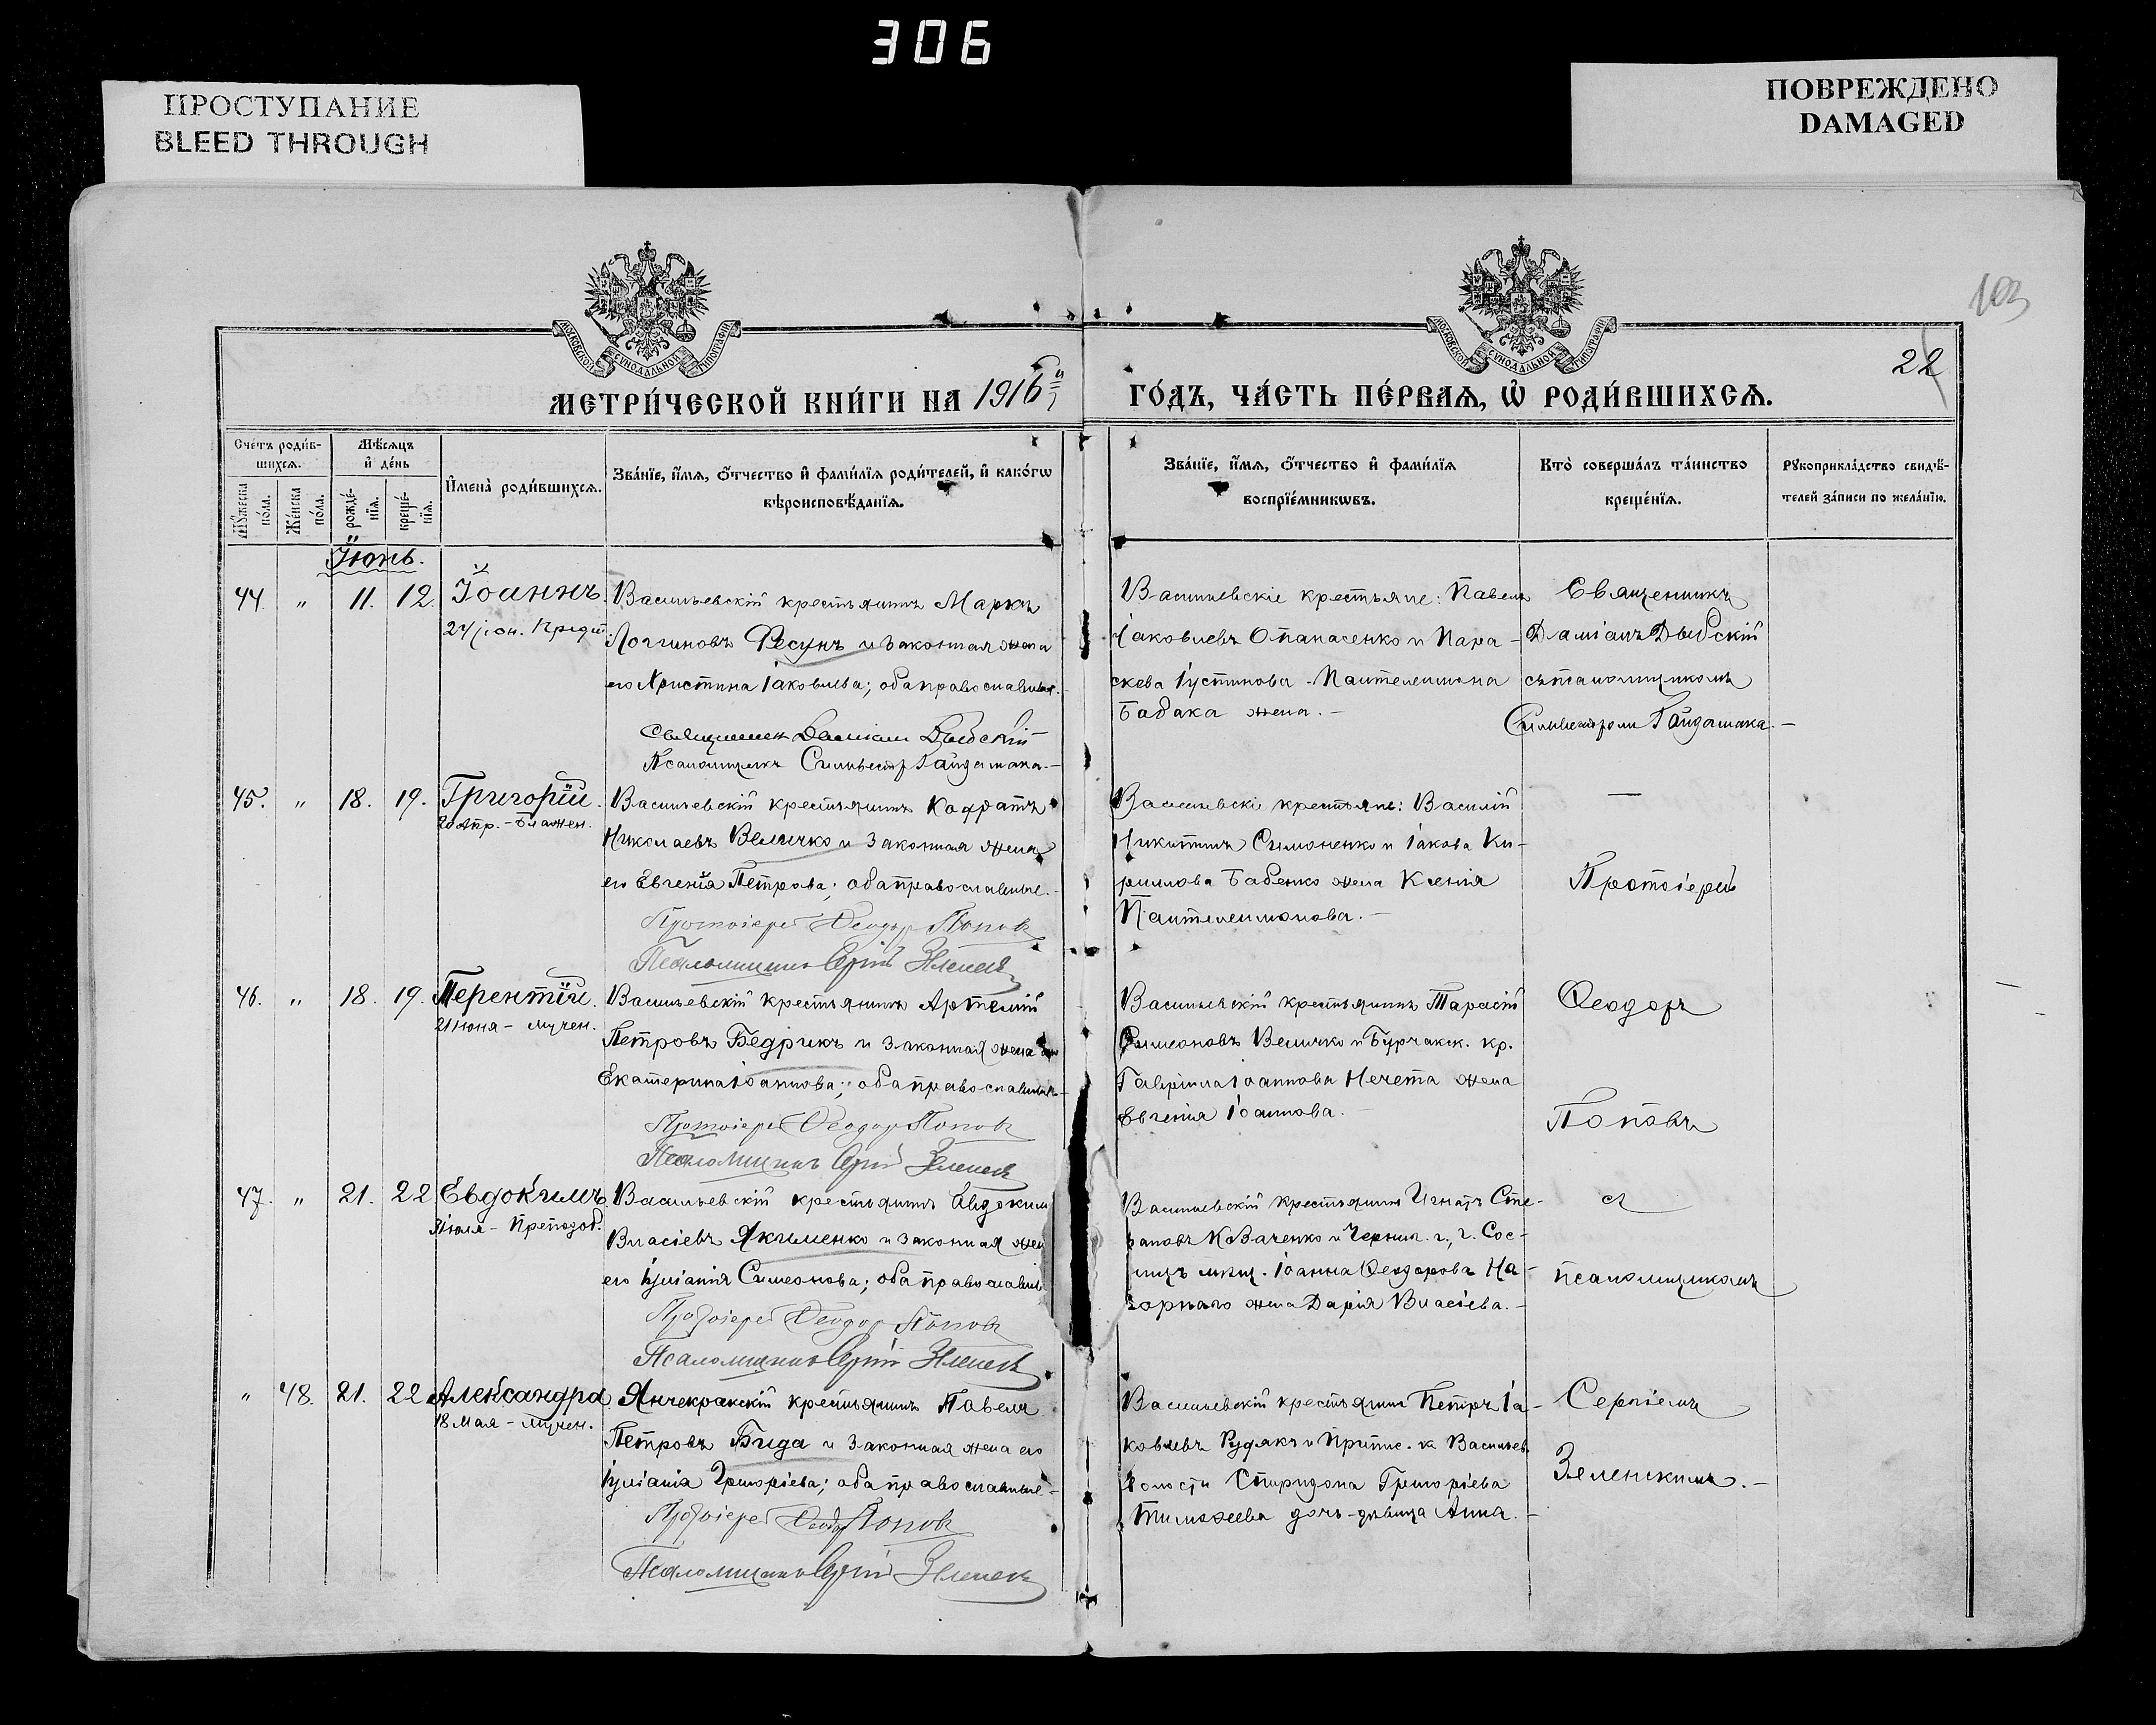 306
ПРОСТУПАНИЕ
BLEED THROUGH
ПОВРЕЖДЕНО
DAMAGED
103
МОСКОВСКОЙ СѴНОДАЛЬНОЙ ТИПОГРАФІИ
МОСКОВСКОЙ СѴНОДАЛЬНОЙ ТИПОГРАФІИ
22
МЕТРИ́ЧЕСКОЙ КНИ́ГИ НА 1916й
ГО́ДЪ, ЧА́СТЬ ПЕ́РВАѦ, Ѡ҆ РОДИ́ВШИХСѦ.
Сче́тъ роди́в-
шихсѧ.
Мѣ́сѧцъ
и҆ де́нь
Мꙋ́жеска по́ла.
Же́нска по́ла.
рожде́-нїѧ.
креще́-нїѧ.
И҆мена̀ роди́вшихсѧ.
Зва́нїе, и҆́мѧ, ѻ҆́тчество и҆ фами́лїѧ роди́телей, и҆ како́гѡ
вѣроисповѣ́данїѧ.
Зва́нїе, и҆́мѧ, ѻ҆́тчество и҆ фами́лїѧ
воспрїе́мникѡвъ.
Кто̀ соверша́лъ та́инство
креще́нїѧ.
Рꙋкоприкла́дство свидѣ́-
телей за́писи по жела́нїю.
Іюнь.
44. " 11. 12. Іоаннъ
24 іюн. Предт.
Васильевскій крестьянинъ Маркъ
Логгиновъ Фесунъ и законная жена
его Христина Іаковлева; оба православные.
Священник Даміан Дыбскій
Псаломщикъ Сильвестр Гайдамака.-
Васильевскіе крестьяне: Павелъ
Іаковлевъ Опанасенко и Пара-
скева Іустинова - Пантелеимона
Бабака жена.-
Священникъ
Даміанъ Дыбскій
съ псаломщикомъ
Сильвестром Гайдамака.-
45. " 18. 19. Григорій.
20 Апр. - Блажен.
Васильевскій крестьянинъ Кодратъ
Николаевъ Величко и законная жена
его Евгенія Петрова; оба православные.
Протоіерей Ѳеодор Попов
Псаломщикъ Сергій Зеленск
Васильевскі крестьяне: Василій
Никитинъ Симоненко и Іакова Ки-
риллова Бабенко жена Ксенія
Пантелеимонова.-
-
Протоіерей
46. " 18. 19. Терентій.
21 Іюня - мучен.
Васильевскій крестьянинъ Артемій
Петровъ Бедрикъ и законная жена его
Екатерина Іоаннова; оба православные-
Протоіерей Ѳеодор Попов
Псаломщикъ Сергій Зеленск
Васильевскій крестьянинъ Тарасій
Симеоновъ Величко и Бурчакск. кр.
Гавріила Іоаннова Нечета жена
Евгенія Іоаннова.-
Ѳеодоръ
Поповъ
47. " 21. 22 Евдокимъ.
Іюля - Преподоб.
Васильевскій крестьянинъ Евдоким
Власіевъ Якименко и законная жен
его Іуліанія Симеонова; оба православн
Протоіерей Ѳеодор Попов
Псаломщикъ Сергій Зеленск
Васильевскій крестьянинъ Игнатъ Сте-
фановъ Коваченко и Черниг. г., г. Сос-
ницъ мѣщ. Іоанна Ѳеодорова На-
горнаго жена Дарія Власіева.-
съ
псаломщикомъ
" 48. 21. 22 Александра.
18 Мая - мучен.
Янчекракскій крестьянинъ Павелъ
Петровъ Бида и законная жена его
Іуліанія Григоріева; оба православные-
Протоіерей Ѳеодор Попов
Псаломщикъ Сергій Зеленск
Васильевскій крестьянин Петръ Іа-
ковлевъ Рудякъ и Припис. к Васильев.
волости Спиридона Григоріева
Тимоѳеева дочь-дѣвица Анна.-
Сергіемъ
Зеленскимъ.-